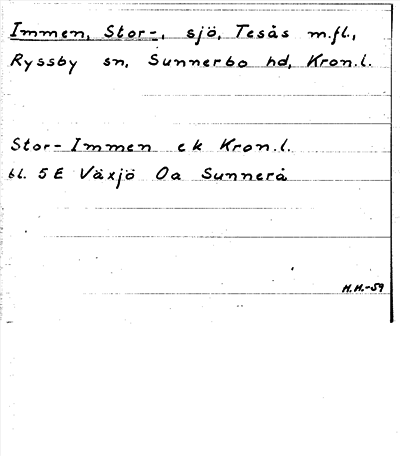 Immen, Stor-, sjö, Tesås m.fl.,
Ryssby sn, Sunnerbo hd, Kron.l.
Stor-Immen ek Kron.l.
bl. 5E Växjö Oa Sunnerå
H.H.-59